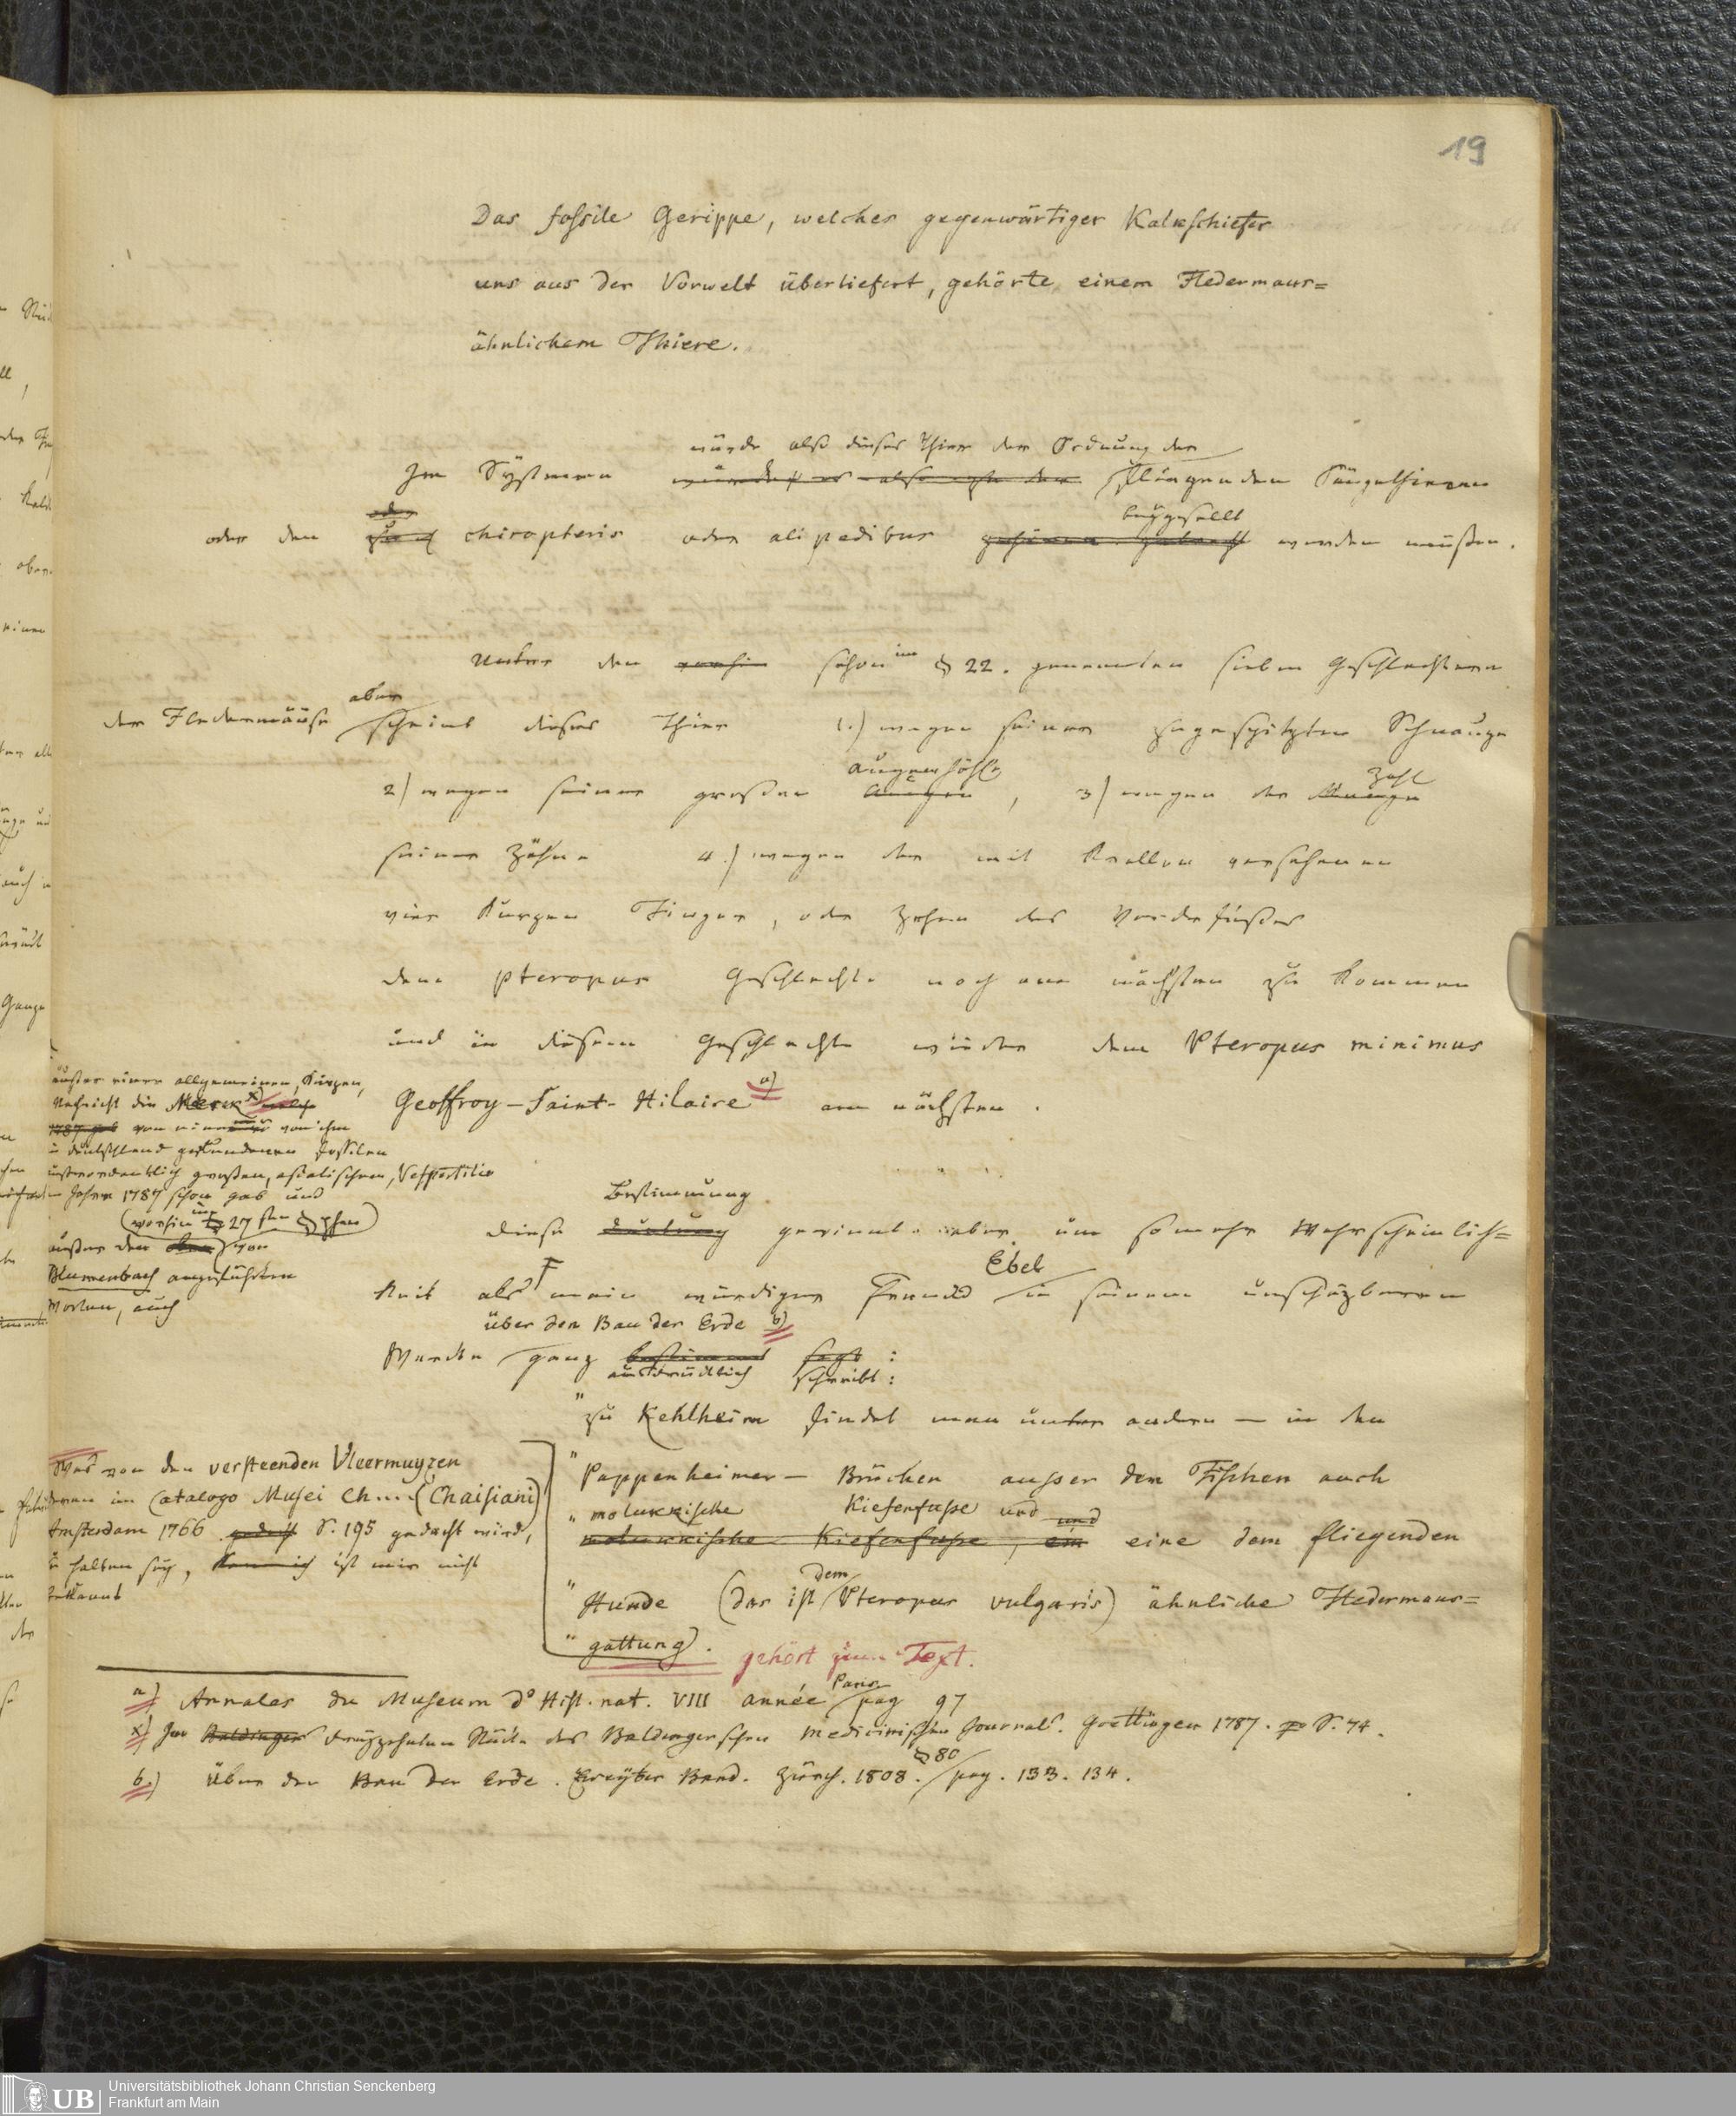 19
Das fossile Gerippe, welches gegenwärtiger Kalkschiefer
uns aus der Vorwelt überliefert, gehörte einem Fledermaus=
ähnlichem Thiere.
würde also dieses Thier der Ordnung der
Im Systeme fliegenden Säugethieren
oder
oder den chiropteris oder alipedibus beygesellt werden müßen.
Unter den vorhin schon im § 22. genannten sieben Geschlechtern
der Fledermäuse aber scheint dieses Thier 1.) wegen seiner zugespitzten Schnauze
2) wegen seiner großen Augenhöhle, 3) wegen der Zahl
seiner Zähne 4.) wegen der mit Krallen versehenen
vier kurzen Finger, oder Zehen des Vorderfußes
dem pteropus Geschlechte noch am nächsten zu kommen
und in diesem Geschlechte wieder dem Pteropus minimus
Geoffroy-Saint-Hilaire a) am nächsten.
außer einer allgemeinen, kurzen,
Nachricht die Merck x)
1787 gab von einem von ihm
in Deutschland gefundenen fossilen
außerordentlich großen, asiatischen, Vespertilio
im Jahre 1787 schon gab und
(vorhin im 27sten §phen)
außer den oben von
Blumenbach angeführten
Worten, auch
Bestimmung
Diese deutung gewinnt aber um so mehr Wahrscheinlich=
keit als mein würdiger Freund Ebel in seinem unschäzbaren
über den Bau der Erde b)
Werke ganz bestimmt sagt :
ausdrücklich schreibt :
"zu Kehlheim findet man unter andern — in den
"Pappenheimer — Brüchen ausser den Fischen auch
"molukkische Kiefenfusse und
molukkische Kiefenfusse, ein und eine dem fliegenden
"Hunde (das ist dem Pteropus vulgaris) ähnliche Fledermaus=
"gattung).
gehört zum Text.
Was von den versteenden Vleermuyzen
deren im Catalogo Musei Ch... (Chaisiani)
Amsterdam 1766 gedacht S. 195 gedacht wird,
zu halten sey, ist mir nicht
bekannt
a) Annales du Museum d'Hist. nat. VIII année Paris pag 97
x) Im Baldinger dreyzehnten Stück des Baldingerschen medicinischen Journals. Goettingen 1787. S. 74.
b.) Über den Bau der Erde. Zweyter Band. Zürch. 1808. § 80 pag. 133. 134.
UB
Universitätsbibliothek Johann Christian Senckenberg
Frankfurt am Main